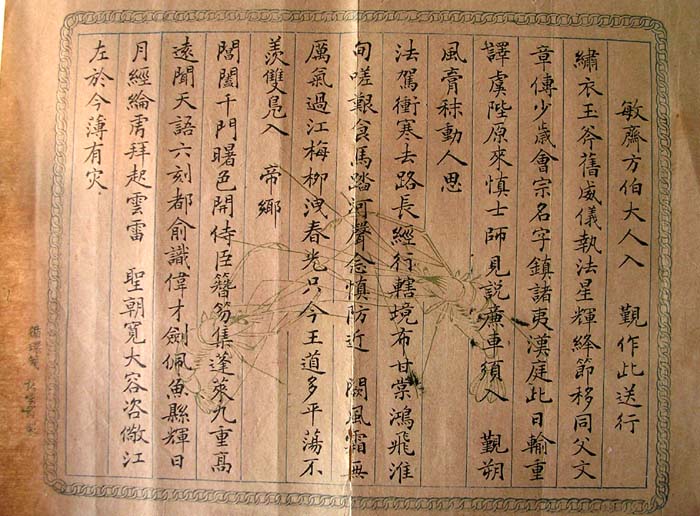 敏齋方伯大人入　覲作此送行
繡衣玉斧舊威儀執法星輝絳節移同父文
章傳少歲會宗名字鎮諸夷漢庭此日輸重
譯虞陛原來慎士師見說廉車須入　覲朔
風膏秣動人思
法駕衝寒去路長經行轄境布甘棠鴻飛淮
甸嗟艱食馬踏河聲念慎防近　闕風霜無
厲氣過江梅柳洩春光只今王道多平蕩不
羨雙鳧入　帝鄉
閶闔千門曙色開侍臣簪笏集蓬萊九重高
遠聞天語六刻都俞識偉才劍佩魚縣輝日
月經綸虎拜起雲雷　聖朝寬大容咨儆江
左於今薄有灾